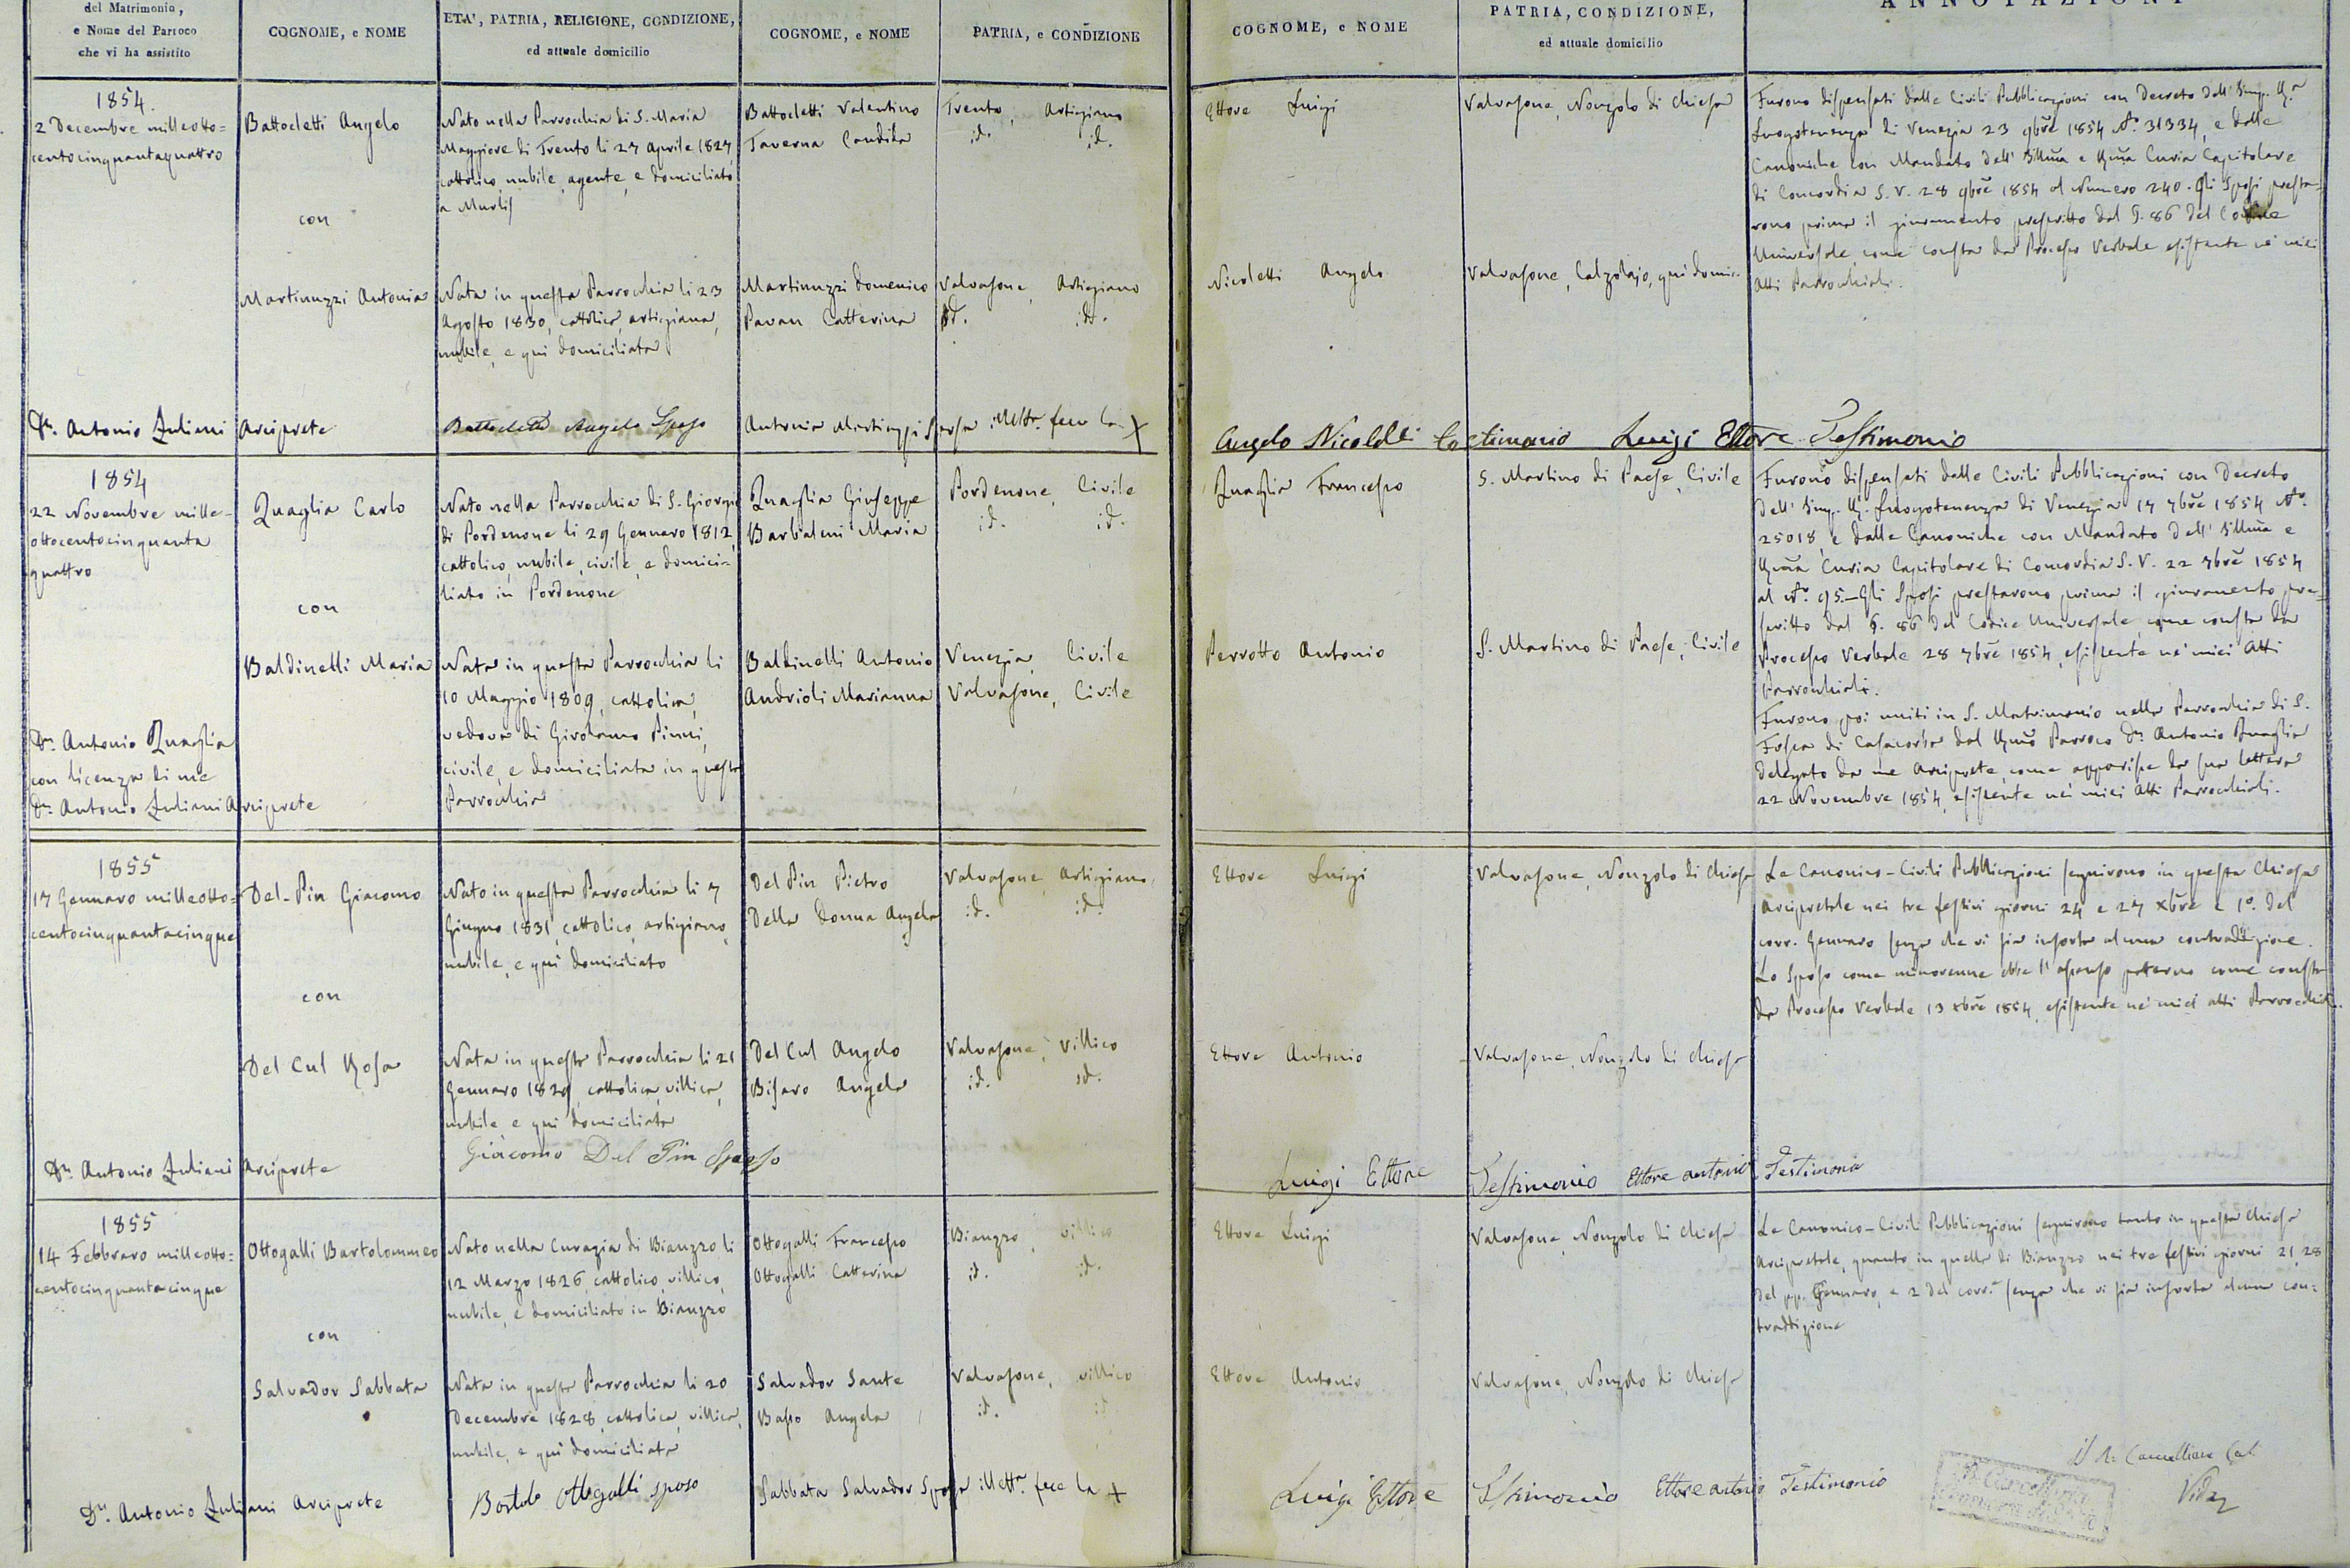 del Matrimonio,
e Nome del Parroco
che vi ha assistito
COGNOME, e NOME
ETA', PATRIA, RELIGIONE, CONDIZIONE,
ed attuale domicilio
COGNOME, e NOME
PATRIA, e CONDIZIONE
COGNOME, e NOME
PATRIA, CONDIZIONE,
ed attuale domicilio
ANNOTAZIONI
1854.
2 Decembre milleotto=
centocinquantaquattro
Battocletti Angelo
con
Martinuzzi Antonia
Nato nella Parrocchia di S. Maria
Maggiore di Trento li 27 Aprile 1827
cattolico, nubile, agente, e domiciliato
a Murlis
Nata in questa Parrocchia li 23
Agosto 1830, cattolica, artigiana,
nubile, e qui domiciliata
Battocletti Valentino
Taverna Candida
Martinuzzi Domenico
Pavan Catterina
Trento, Artigiano
id. id.
Valvasone, Artigiano
id. id.
Ettore Luigi
Nicoletti Angelo
Valvasone, Nonzolo di Chiesa
Valvasone, Calzolajo, qui domic.
Furono dispensati dalle Civili Pubblicazioni con Decreto dell' Imp. R.a
Luogotenenza di Venezia 23 9bre 1854 No. 31334, e dalle
Canoniche con Mandato dell' Illma e Rma Curia Capitolare
di Concordia S. V. 28 9bre 1854 al Numero 240. Gli Sposi presta-
rono prima il giuramento prescritto dal §. 86 del Codice
Universale, come consta da Processo Verbale esistente ne' miei
Atti Parrocchiali.
Dn. Antonio Zuliani Arciprete
Battocletti Angelo Sposo
Antonia Martinuzzi Sposa illettr. fece la +
Angelo Nicoletti testimonio Luigi Ettore Testimonio
1854
22 Novembre mille-
ottocentocinquanta
quattro
Quaglia Carlo
con
Baldinelli Maria
Nato nella Parrocchia di S. Giorgio
di Pordenone li 29 Gennaro 1812,
cattolico, nubile, civile, e domici-
liato in Pordenone
Nata in questa Parrocchia li
10 Maggio 1809, cattolica,
vedova di Girolamo Pinni,
civile, e domiciliata in questa
Parrocchia
Quaglia Giuseppe
Barbaleni Maria
Baldinelli Antonio
Andrioli Marianna
Pordenone, Civile
id. id.
Venezia, Civile
Valvasone, Civile
Quaglia Francesco
Perrotto Antonio
S. Martino di Paese, Civile
S. Martino di Paese, Civile
Furono dispensati dalle Civili Pubblicazioni con Decreto
dell' Imp. R. Luogotenenza di Venezia 17 7bre 1854 No.
25018, e dalle Canoniche con Mandato dell' Illma e
Rma Curia Capitolare di Concordia S. V. 22 7bre 1854
al No. 95.- Gli Sposi prestarono prima il giuramento pre-
scritto dal §. 86 del Codice Universale, come consta da
Processo Verbale 28 7bre 1854, esistente ne' miei Atti
Parrocchiali.
Furono poi uniti in S. Matrimonio nella Parrocchia di S.
Fosca di Casacorba dal Rmo Parroco Dn. Antonio Quaglia
delegato da me Arciprete, come apparisce da sua lettera
22 Novembre 1854, esistente nei miei Atti Parrocchiali.
Dn. Antonio Quaglia
con licenza di me
Dn. Antonio Zuliani Arciprete
1855
17 Gennaro milleotto=
centocinquantacinque
Del-Pin Giacomo
con
Del Cul Rosa
Nato in questa Parrocchia li 7
Giugno 1831, cattolico, artigiano,
nubile, e qui domiciliato
Nata in questa Parrocchia li 21
Gennaro 1829, cattolica, villica,
nubile e qui domiciliata
Del Pin Pietro
Della Donna Angela
Del Cul Angelo
Bisaro Angela
Valvasone, Artigiano,
id. id.
Valvasone, Villico
id. id.
Ettore Luigi
Ettore Antonio
Valvasone, Nonzolo di Chiesa
Valvasone, Nonzolo di Chiesa
Le Canonico-Civili Pubblicazioni seguirono in questa Chiesa
Arcipretale nei tre festivi giorni 24 e 27 Xbre e 1o. del
corr. Gennaro senza che vi sia insorta alcuna contradizione.
Lo Sposo come minorenne ebbe l'assenso paterno come consta
da Processo Verbale 13 Xbre 1854, esistente ne' miei atti Parrocchiali.
Dn. Antonio Zuliani Arciprete
Giacomo Del Pin Sposo
Luigi Ettore Testimonio Ettore Antonio Testimonio
1855
14 Febbraro milleotto=
centocinquantacinque
Ottogalli Bartolommeo
con
Salvador Sabbata
Nato nella Curazia di Bianzzo li
12 Marzo 1826, cattolico, villico,
nubile, e domiciliato in Bianzzo
Nata in questa Parrocchia li 20
Decembre 1828, cattolica, villica,
nubile, e qui domiciliata
Ottogalli Francesco
Ottogalli Catterina
Salvador Sante
Basso Angela
Bianzzo, villico
id. id.
Valvasone, villico
id. id.
Ettore Luigi
Ettore Antonio
Valvasone, Nonzolo di Chiesa
Valvasone, Nonzolo di Chiesa
Le Canonico-Civili Pubblicazioni seguirono tanto in questa Chiesa
Arcipretale, quanto in quella di Bianzzo nei tre festivi giorni 21, 28
del pp. Gennaro, e 2 del corr.e senza che vi sia insorta alcuna con-
tradizione
Dn. Antonio Zuliani Arciprete
Bortolo Ottogalli sposo
Sabbata Salvador Sposa illettr. fece la +
Luigi Ettore Testimonio Ettore Antonio Testimonio
il R. Cancelliere